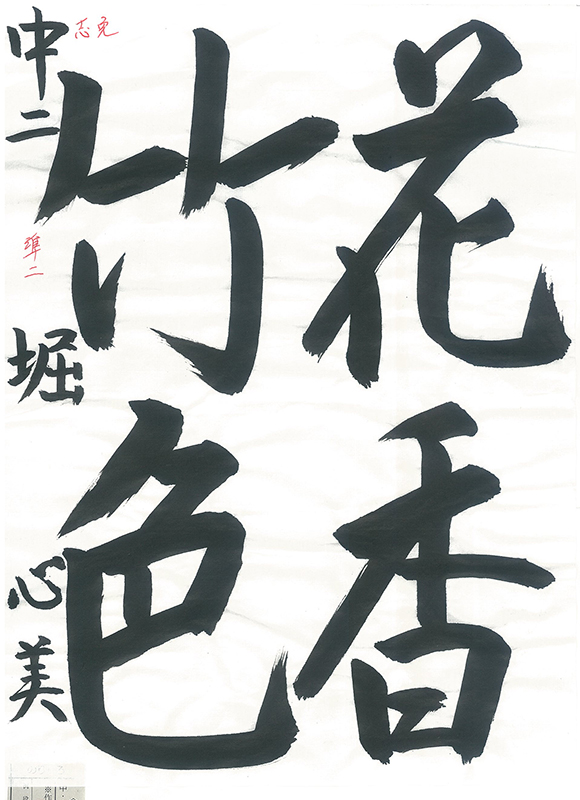 花香
竹色
中二 堀 心美
準二